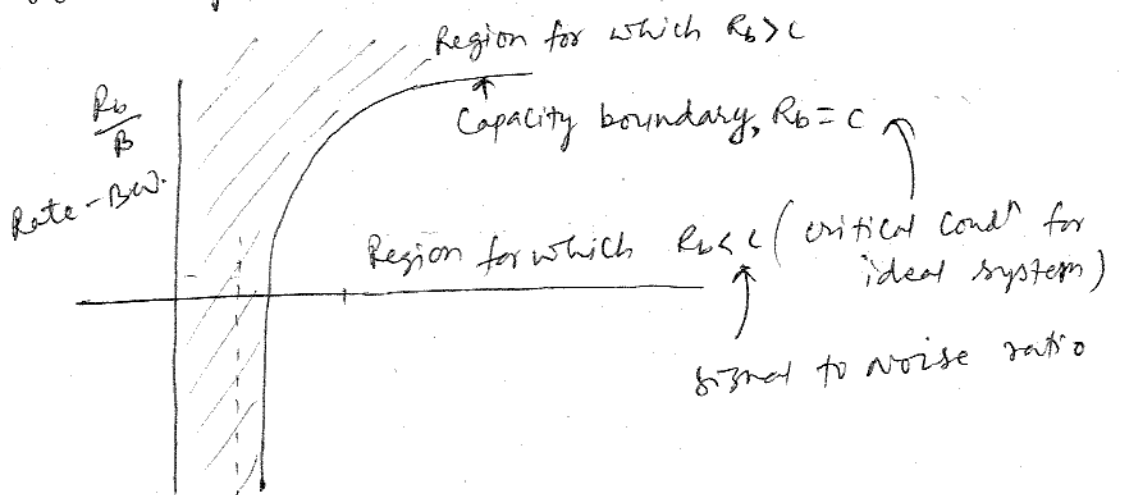 Region for which Rb>c
Rb
B
Capacity boundary, Rb = c
Rate - BW.
Region for which Rb< c ( critical condn for
ideal system)
signal to Noise ratio